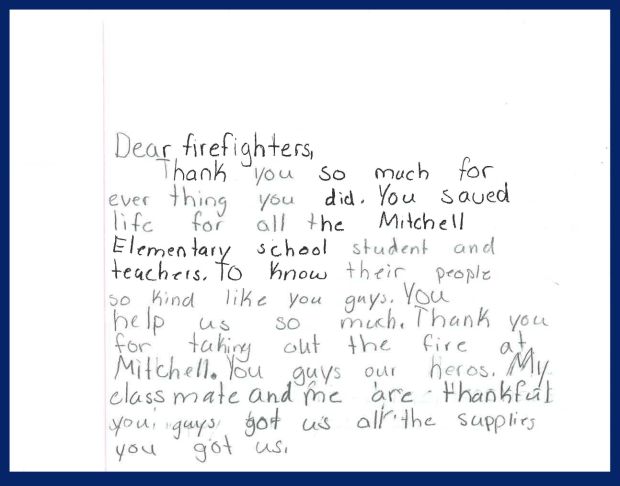 Dear firefighters,
Thank you so much for
ever thing you did. You saved
life for all the Mitchell
Elementary school student and
teachers. To know their people
so kind like you guys. You
help us so much. Thank you
for taking out the fire at
Mitchell. You guys our heros. My
class mate and me are thankful
you guys got us all the supplies
you got us.